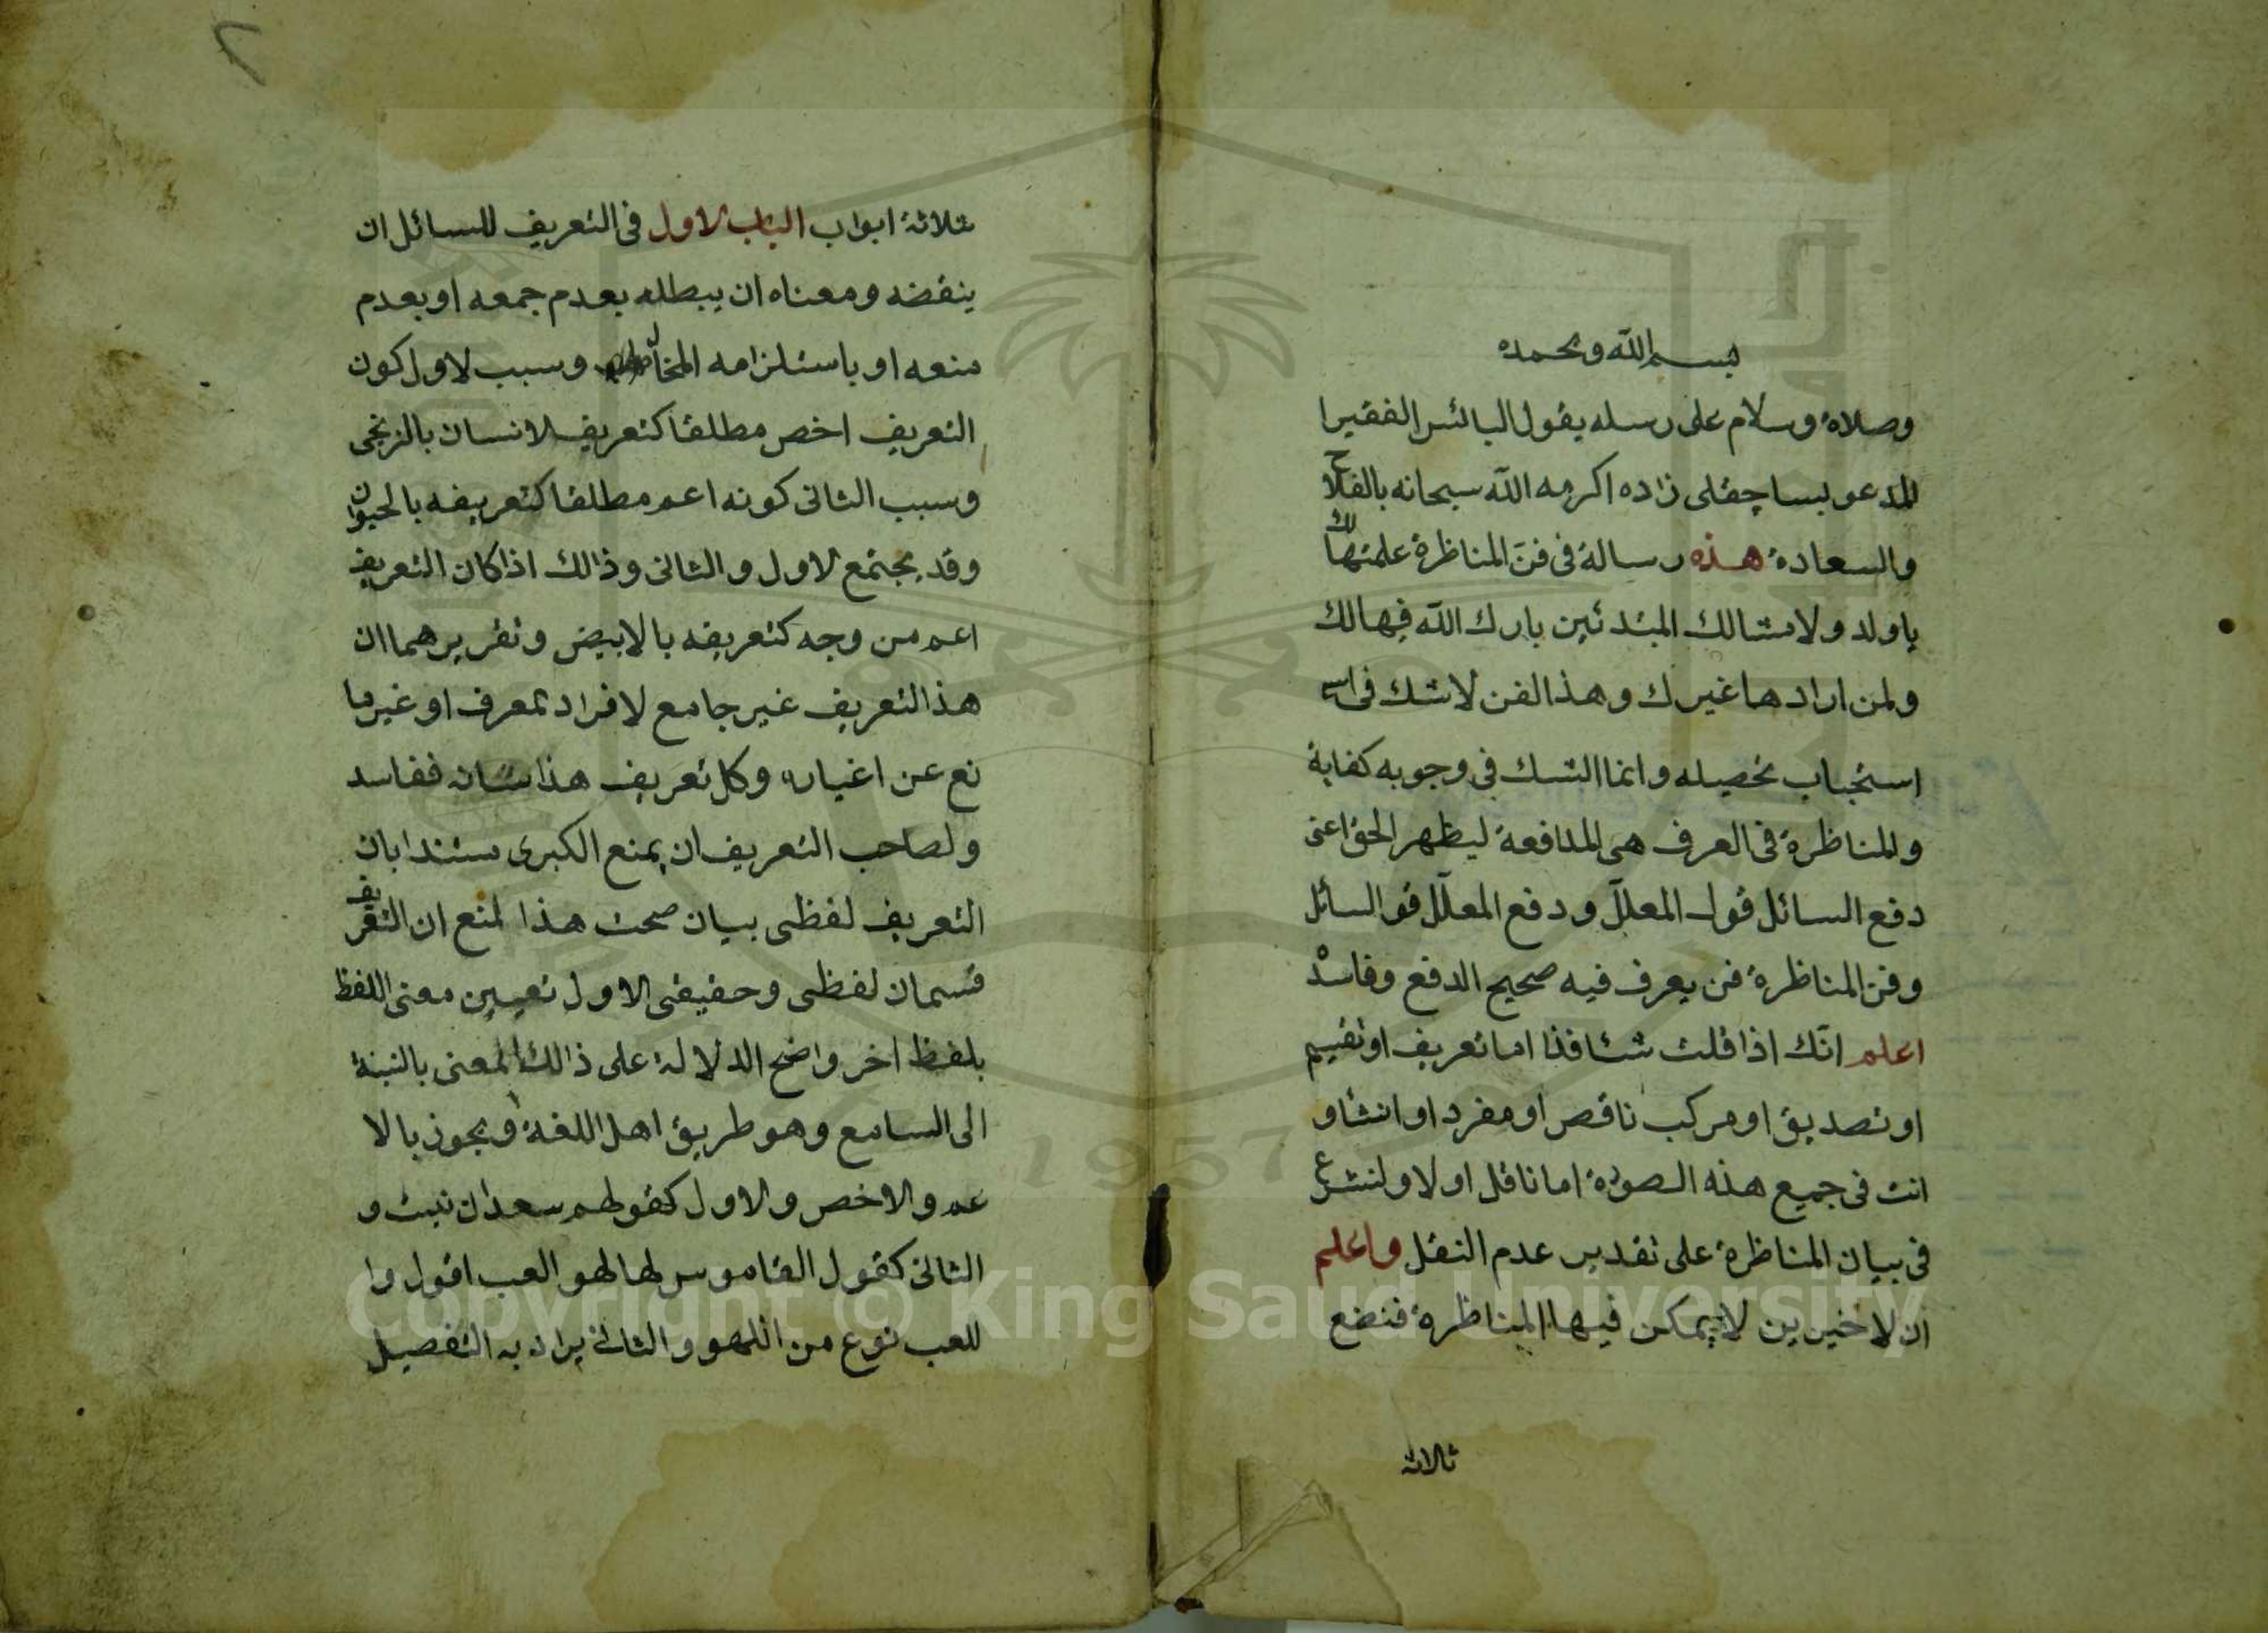 بسم الله وبحمده
وصلاة وسلام على رسله يقول البائس الفقير ا
لمدعو بساچقلى زاده اكرمه الله سبحانه بالفلاح
والسعادة هذه رسالة فى فن المناظرة علمتها لك
يا ولد ولامثالك المبتدئين بارك الله فيها لك
ولمن ارادها غيرك وهذا الفن لا شك فى
استحباب تحصيله وانما الشك فى وجوبه كفاية
والمناظرة فى العرف هى المدافعة ليظهر الحق اعنى
دفع السائل قول المعلل ودفع المعلل قو السائل
وفن المناظرة فن يعرف فيه صحيح الدفع وفاسده
اعلم انك اذا قلت شئا فذا اما تعريف او تقسيم
او تصديق او مركب ناقص او مفرد او انشا و
انت فى جميع هذه الصورة اما ناقل او لا ولنشرع
فى بيان المناظرة على تقدير عدم النقل واعلم
ان لاخيرين لا يمكن فيها المناظرة فنضع
ثلاثة
٢
ثلاثة ابواب الباب لاول فى التعريف للسائل ان
ينقضه ومعناه ان يبطله بعدم جمعه او بعدم
منعه او باستلزامه المحال وسبب لاول كون
التعريف اخص مطلقا كتعريف لانسان بالزنجى
وسبب الثانى كونه اعم مطلقا كتعريفه بالحيوان
وقد يجتمع لاول والثانى وذالك اذا كان التعريف
اعم من وجه كتعريفه بالابيض وتقريرهما ان
هذا التعريف غير جامع لافراد تمعرف او غير ما
نع عن اغياره وكل تعريف هذا شانه ففاسد
ولصاحب التعريف ان يمنع الكبرى ستندا بان
التعريف لفظى بيان صحت هذا لمنع ان التعريف
قسمان لفظى وحقيقى الاول تعيين معنى اللفظ
بلفظ اخر واضح الدلالة على ذالك المعنى بالنبة
الى السامع وهو طريق اهل اللغة ويجوز بالا
عم والاخص والاول كقولهم سعدان نبت و
الثانى كقول القاموس لها لهو العب اقول وا
للعب نوع من اللهو والثانى يراد به التفصيل
Copyright © King Saud University
1957